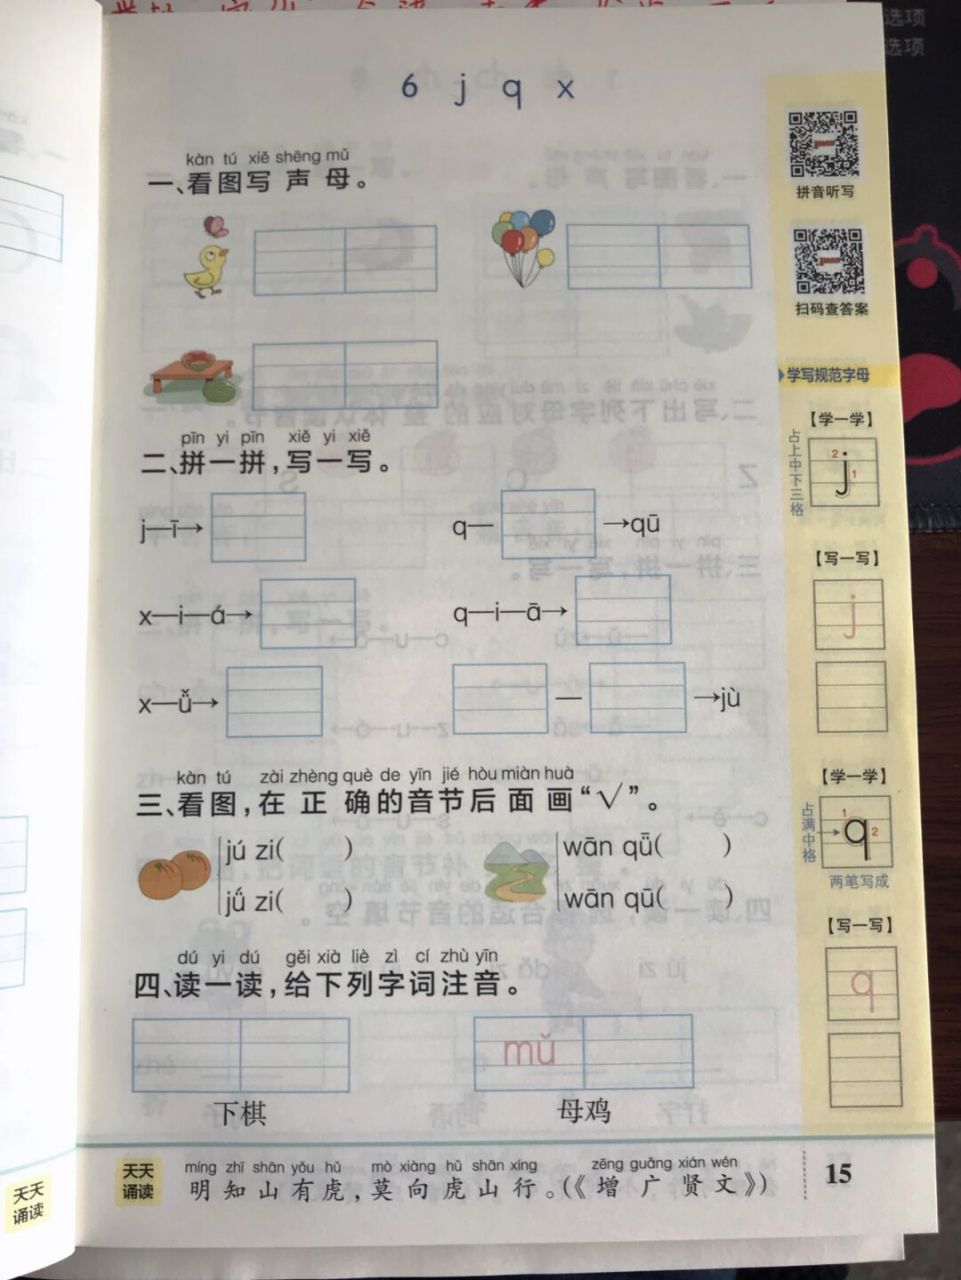 6 j q x
kàn tú xiě shēng mǔ
一、看图写声母。
pīn yi pīn xiě yi xiě
二、拼一拼，写一写。
j—ī→ q— →qū
x—i—á→ q—i—ā→
x—ǚ→ — →jù
kàn tú zài zhèng què de yīn jié hòu miàn huà
三、看图，在正确的音节后面画“√”。
jú zi( ) wān qǖ( )
jǘ zi( ) wān qū( )
dú yi dú gěi xià liè zì cí zhù yīn
四、读一读，给下列字词注音。
mǔ
下棋 母鸡
天天诵读
míng zhī shān yǒu hǔ mò xiàng hǔ shān xíng zēng guǎng xián wén
明知山有虎，莫向虎山行。(《增广贤文》)
15
拼音听写
扫码查答案
学写规范字母
【学一学】
占上中下三格
2 1
j
【写一写】
j
【学一学】
占满中格
1 2
q
两笔写成
【写一写】
q
天天
诵读
选项
选项